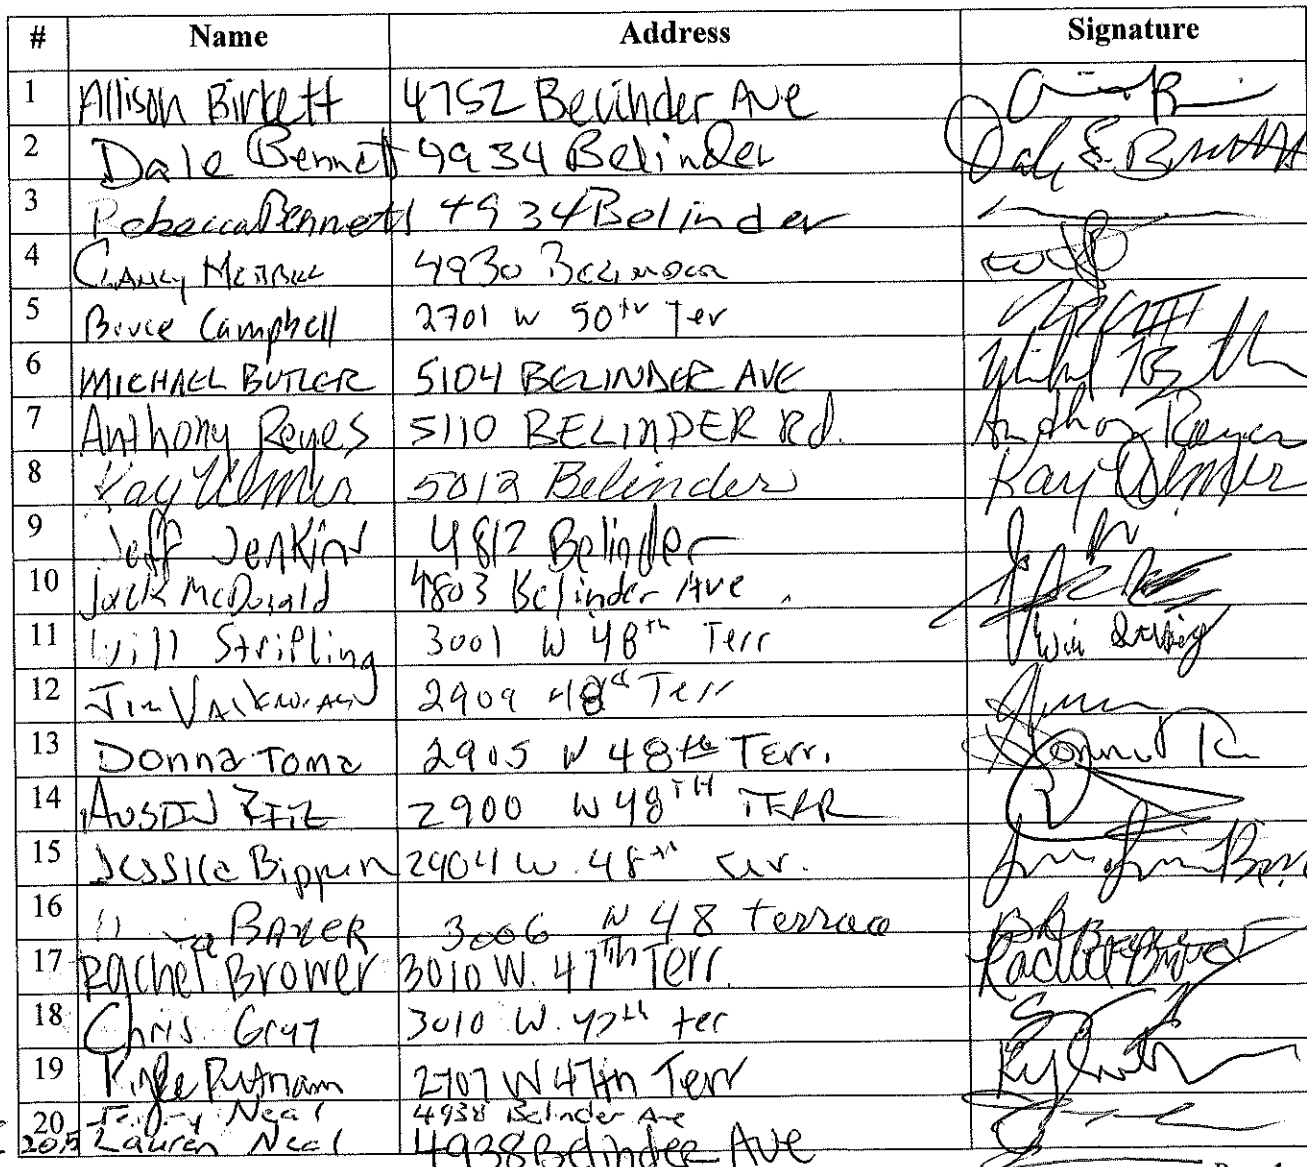 # Name Address Signature
1 Allison Birkett 4752 Belinder Ave
2 Dale Bennett 4934 Belinder Dale E. Bennett
3 Rebecca Bennett 4934 Belinder
4 4930
5 Bruce Campbell 2701 W 50th Ter
6 MICHAEL BUTLER 5104 BELINDER AVE
7 Anthony Reyes 5110 BELINDER Rd. Anthony Reyes
8 Kay Ulmer 5012 Belinder Kay Ulmer
9 Jeff Jenkins 4812 Belinder
10 Jack McDonald 4803 Belinder Ave
11 Will Stripling 3001 W 48th Terr
12 Jim 2909 48th Terr
13 Donna Toma 2905 W 48th Terr.
14 AUSTIN 2900 W 48TH TERR
15 Jessica Bippen 2904 W. 48th
16 BAKER 3006 W 48 terrace
17 Rachel Brower 3010 W. 47th Terr. Rachel Brower
18 Chris Gray 3010 W. 47th ter
19 Kyle Putnam 2707 W 47th Terr
20 Neal 4938 Belinder Ave
20.5 Lauren Neal 4938 Belinder Ave